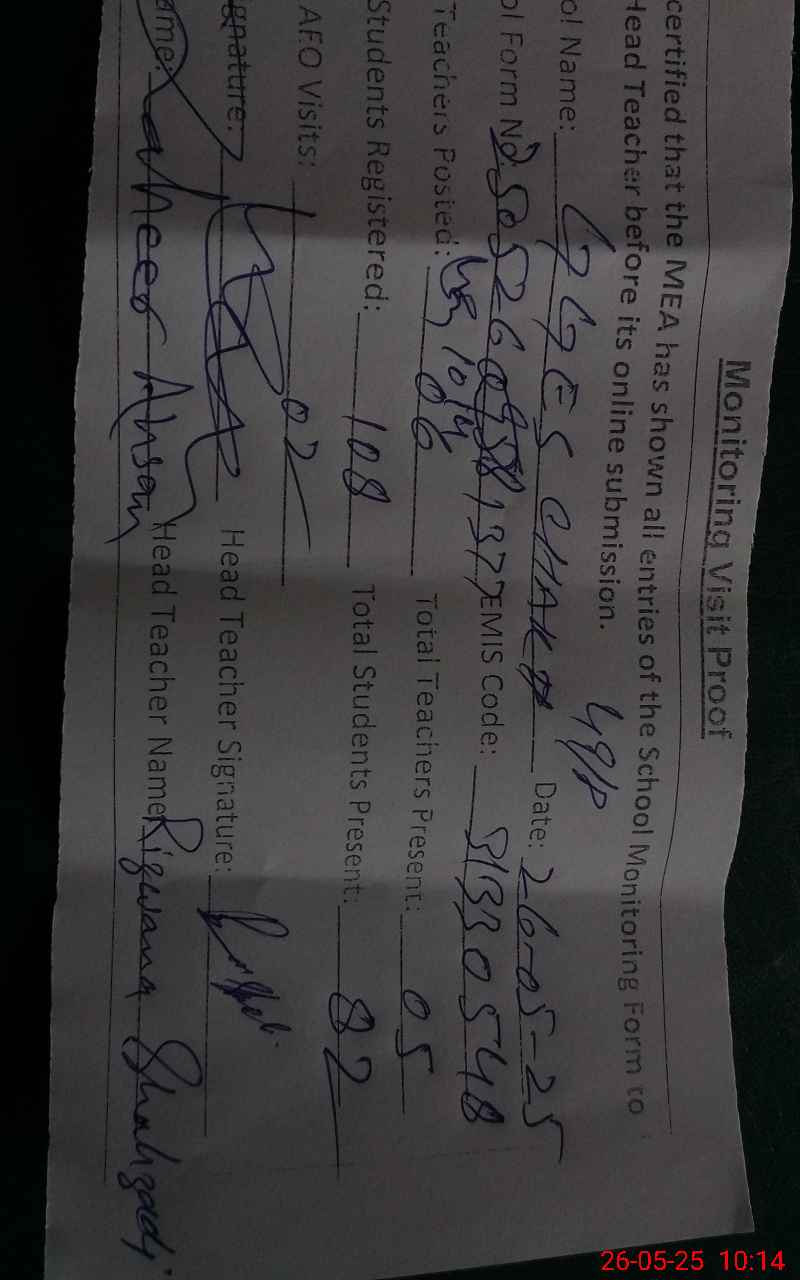 Monitoring Visit Proof
certified that the MEA has shown all entries of the School Monitoring Form to
Head Teacher before its online submission.
49/P
ol Name: GGES CHAK # Date: 26-05-25
ol Form No. EMIS Code: 31330548
Teachers Posted: 06 Total Teachers Present: 05
Students Registered: 108 Total Students Present: 82
AEO Visits: 02
ignature: Head Teacher Signature:
ame: Zaheer Ahsan Head Teacher Name: Rizwana Shahzadi
26-05-25 10:14